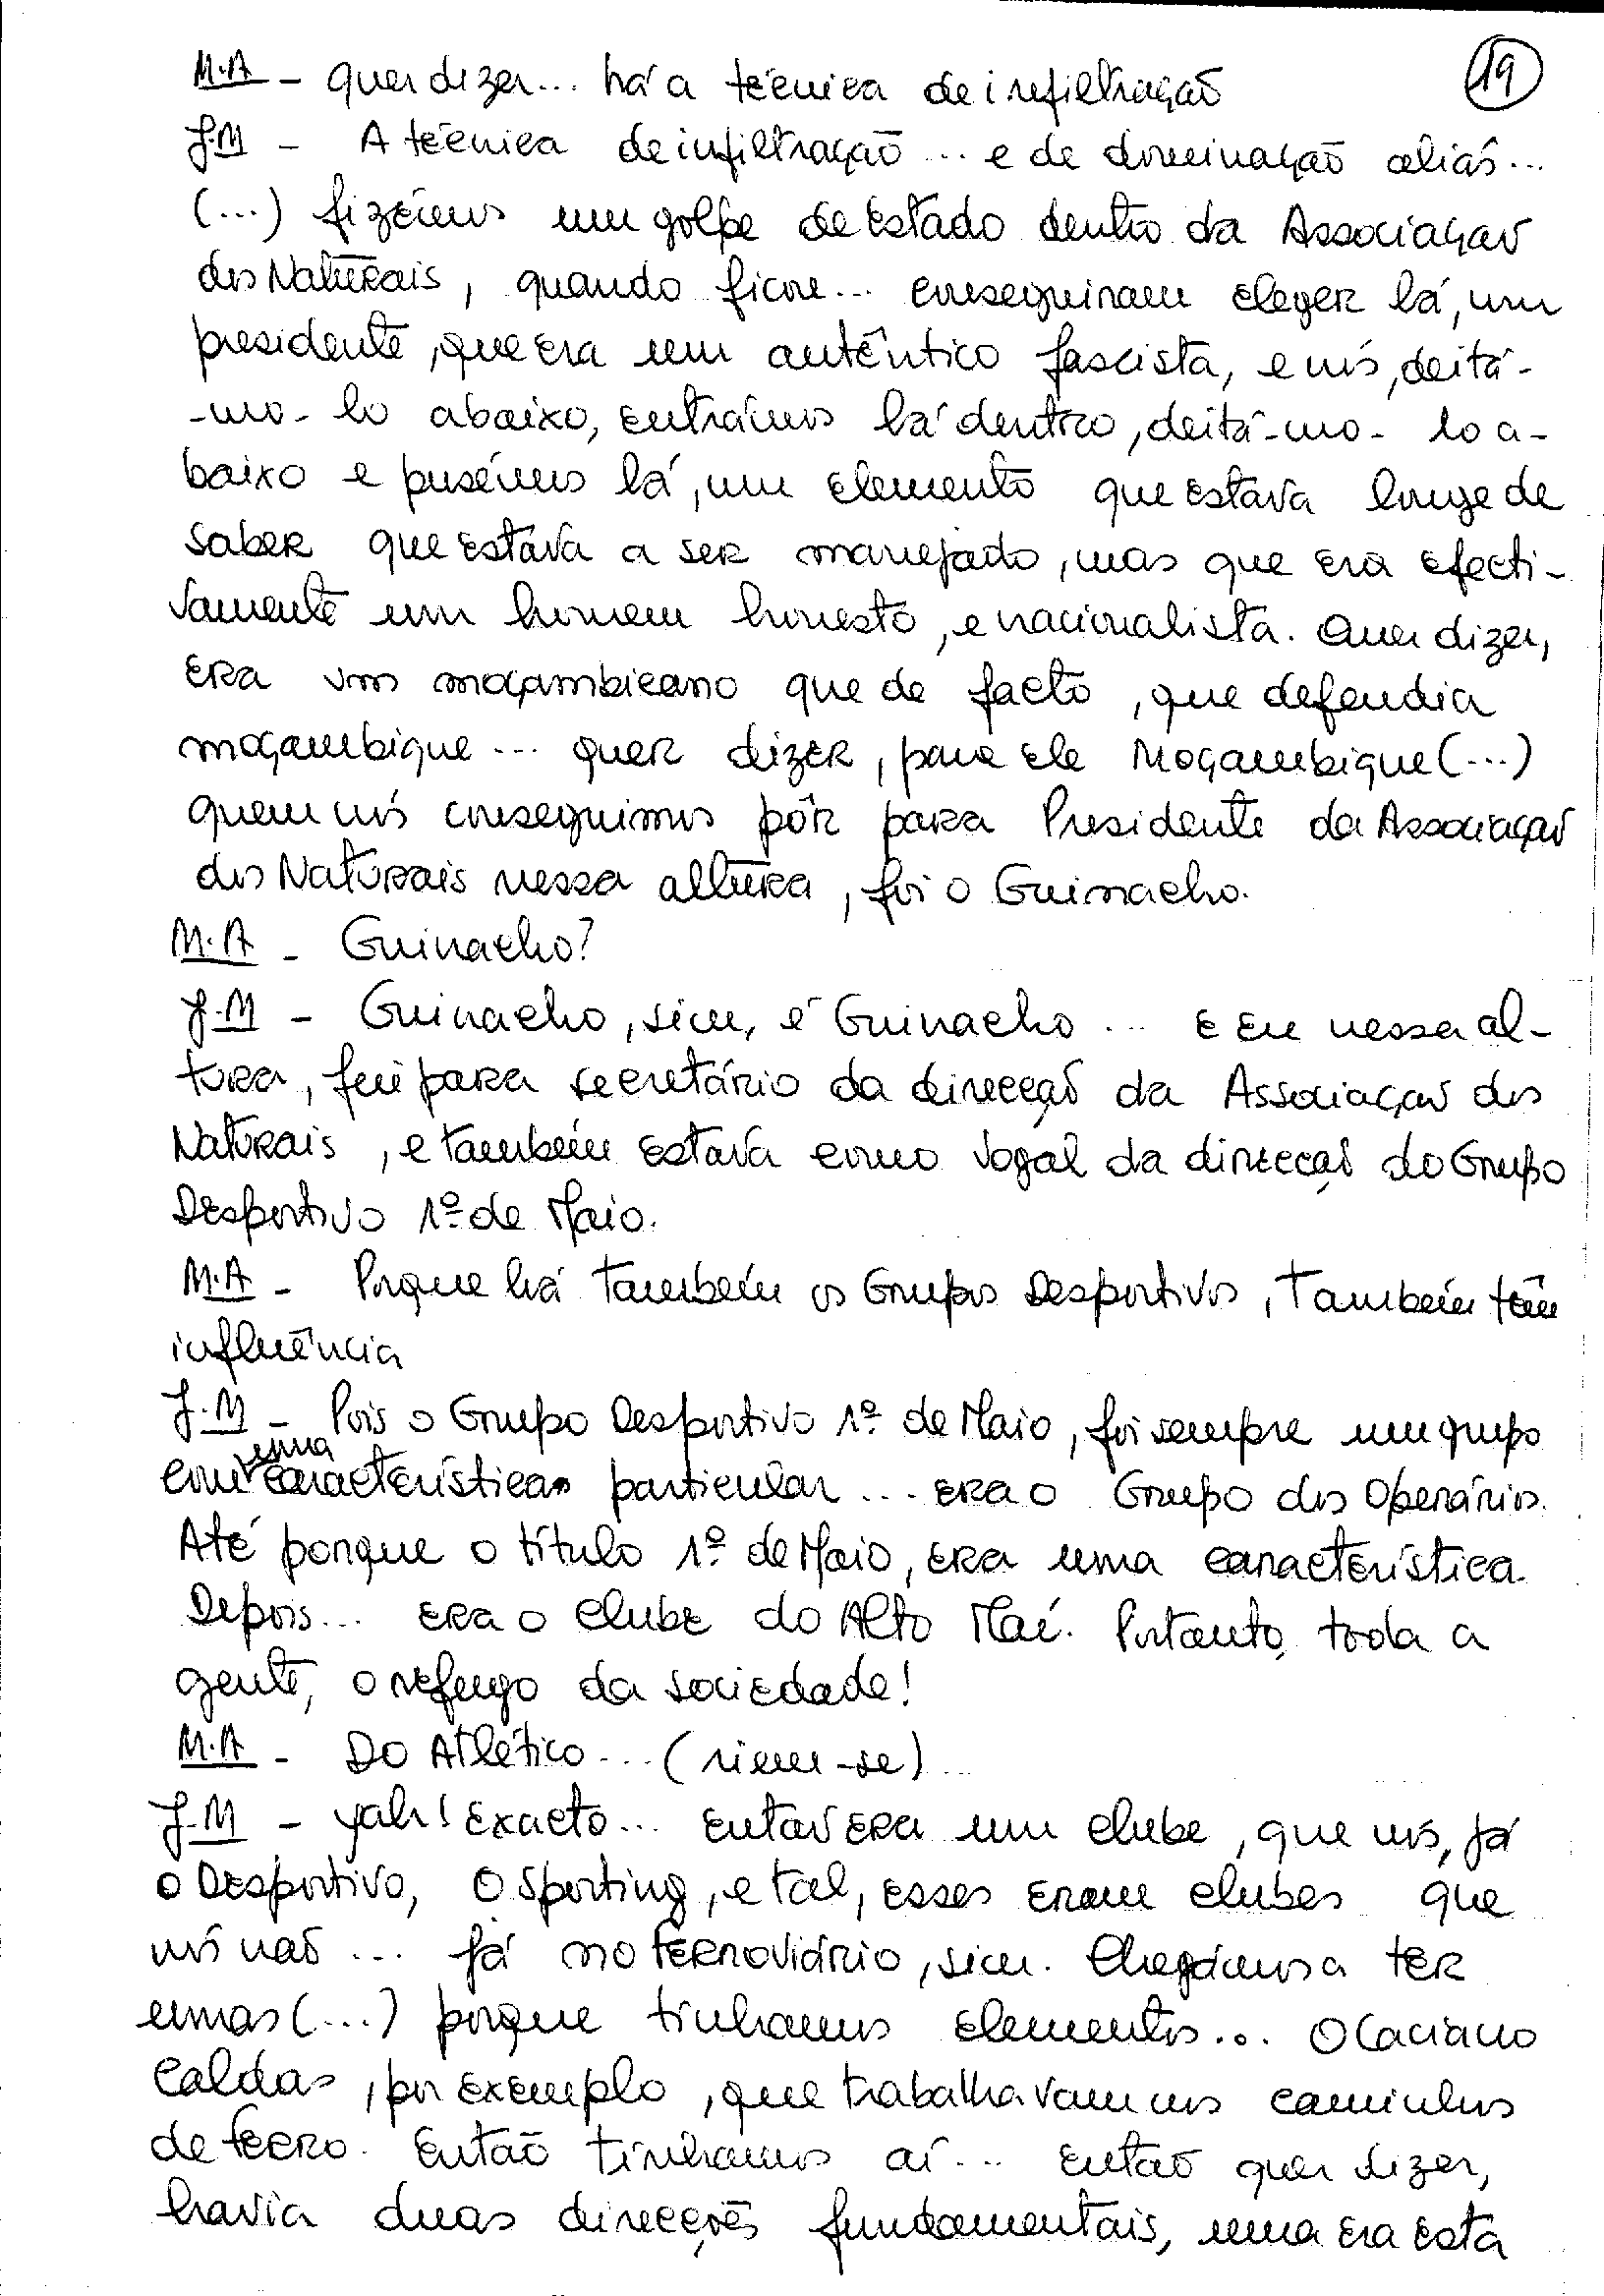 19
M.A - quer dizer... há a técnica de infiltração
J.M - A técnica de infiltração... e de dominação aliás...
(...) fizémos um golpe de Estado dentro da Associação
dos Naturais, quando ficou... conseguiram eleger lá, um
presidente, que era um autêntico fascista, e nós, deitá-
-mo-lo abaixo, entrámos lá dentro, deitá-mo-lo a-
baixo e pusémos lá, um elemento que estava longe de
saber que estava a ser manejado, mas que era efecti-
vamente um homem honesto, e nacionalista. Quer dizer,
era um moçambicano que de facto, que defendia
moçambique... quer dizer, para ele Moçambique (...)
quem nós conseguimos pôr para Presidente da Associação
dos Naturais nessa altura, foi o Guinacho.
M.A - Guinacho?
J.M - Guinacho, sim, é Guinacho... E eu nessa al-
tura, fui para secretário da direcção da Associação dos
Naturais, e também estava como vogal da direcção do Grupo
Desportivo 1º de Maio.
M.A - Porque há também os Grupos Desportivos, também têm
influência
J.M - Pois o Grupo Desportivo 1º de Maio, foi sempre um grupo
com uma característica particular... era o Grupo dos Operários.
Até porque o título 1º de Maio, era uma característica.
Depois... era o clube do Alto Maé. Portanto, toda a
gente, o refugo da sociedade!
M.A - Do Atlético... (riem-se)...
J.M - yah! Exacto... então era um clube, que nós, já
o Desportivo, o Sporting, e tal, esses eram clubes que
nós não... já no Ferroviário, sim. Chegámos a ter
umas (...) porque tinhamos elementos... O Caciano
Caldas, por exemplo, que trabalhavam nos caminhos
de ferro. Então tinhamos aí... então quer dizer,
havia duas direcções fundamentais, uma era esta